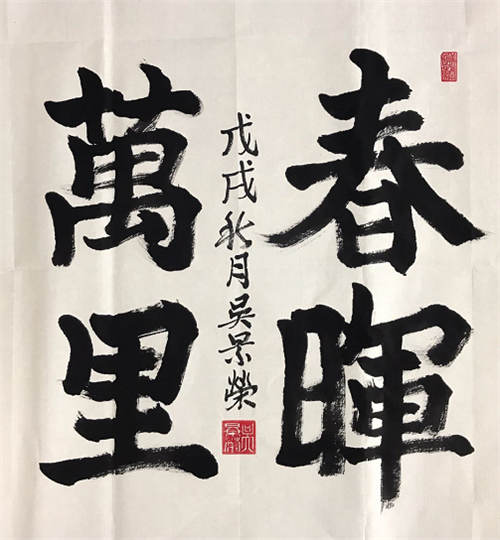 春暉
萬里
戊戌秋月吴景榮